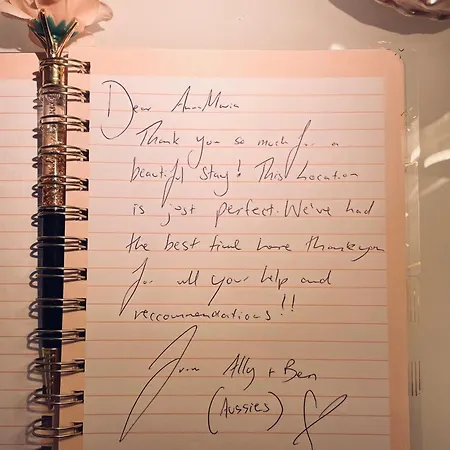 Dear AnnaMaria
Thank you so much for a
beautiful stay! This Location
is just perfect. We've had
the best time here thank you
for all your help and
reccommendations!!
From Ally + Ben
(Aussies)